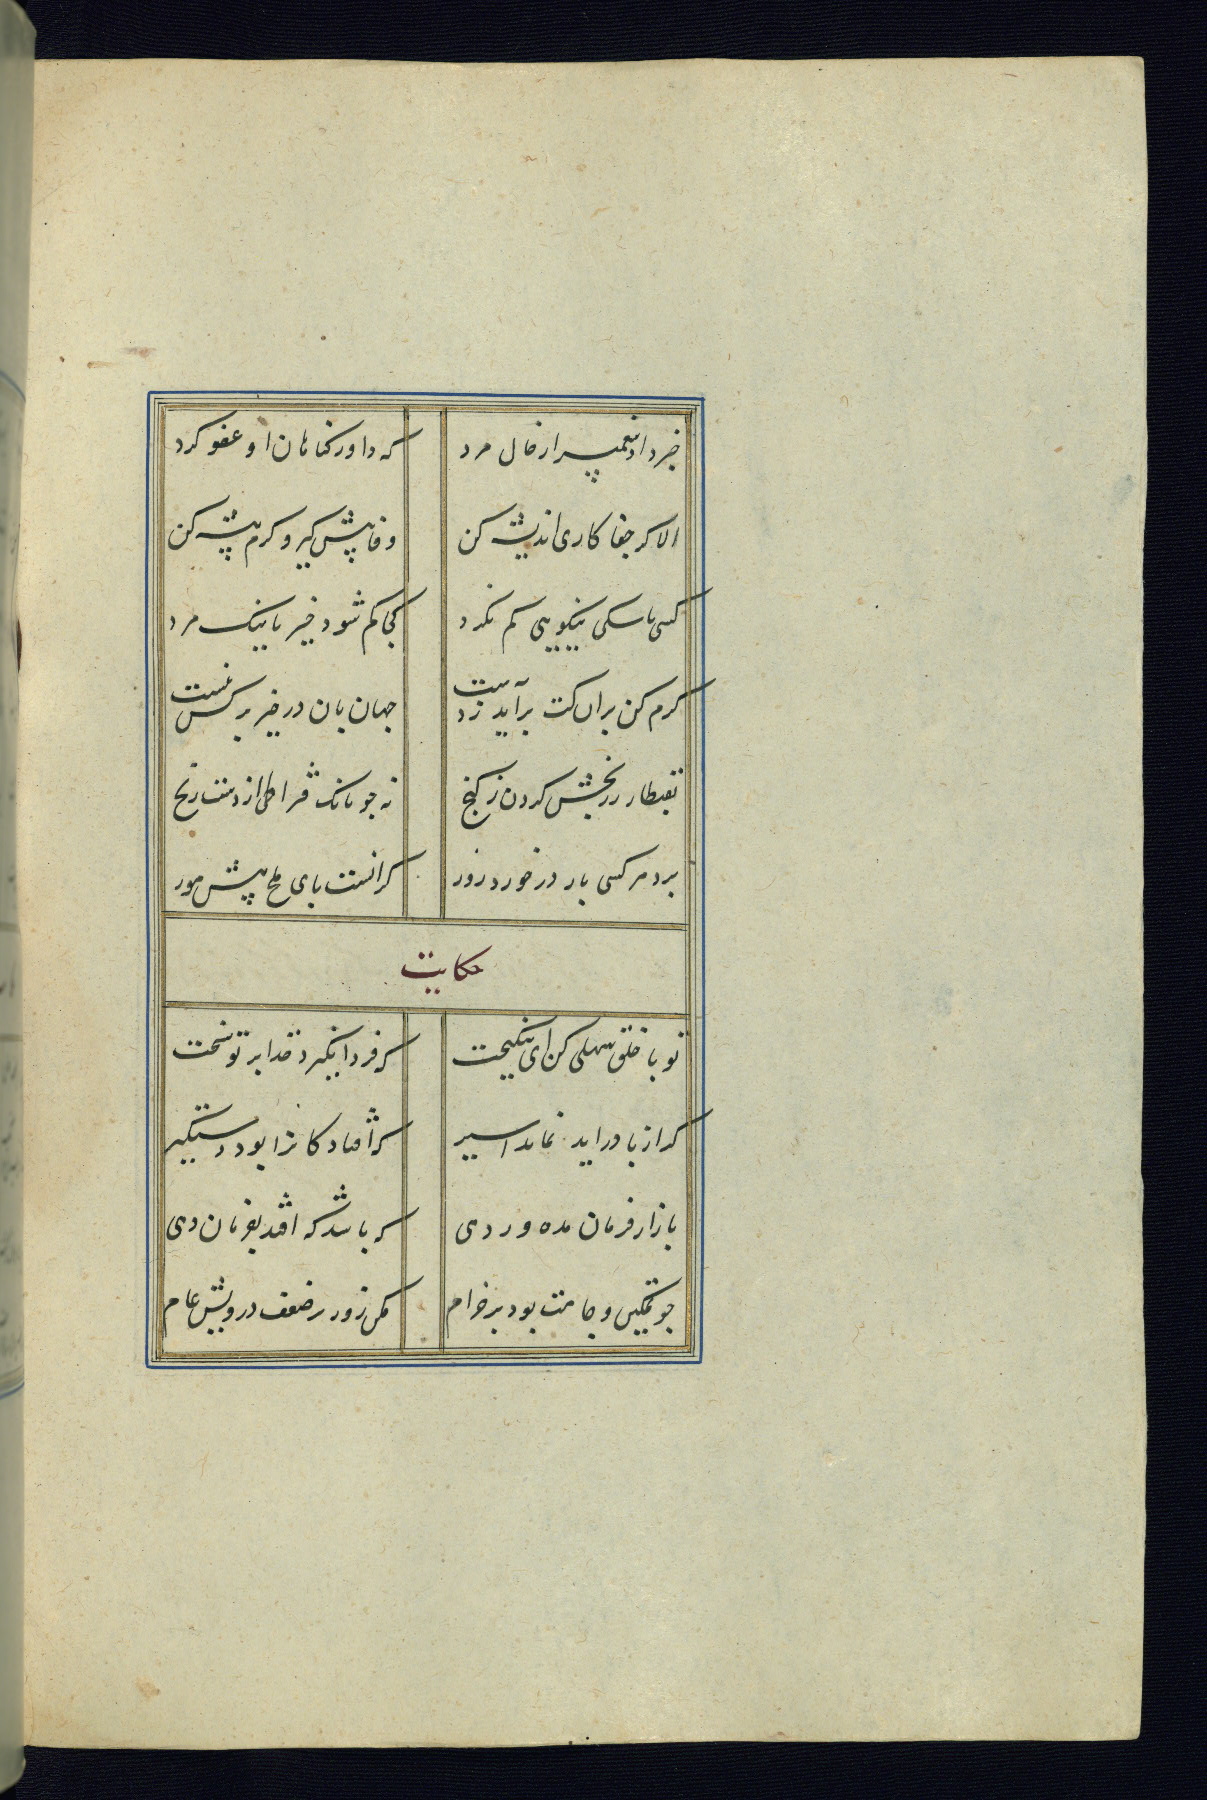 خبر داد پیغمبر از حال مرد که داور گناهان او عفو کرد
الا گر جفا کاری اندیشه کن وفا پیش گیر و کرم پیشه کن
کسی با سکی نیکویی کم نکرد کجا کم شود خیر با نیک مرد
کرم کن بران کت برآید ز دست جهان بان در خیر بر کس نبست
بقنطار زر بخش کردن ز گنج نه چو بانک قیراطی از دست رنج
برد هر کسی بار در خورد زور کرانست پای ملخ پیش مور
حکایت
تو با خلق سهلی کن ای نیکبخت که فردا نگیرد خدا بر تو سخت
گر از پا دراید نماند اسیر که افتادکانرا بود دستگیر
بازار فرمان مده ور دهی که باشد که افتد بفرمان دهی
چو تمکین و جاهت بود بر دوام مکن زور بر ضعف درویش عام